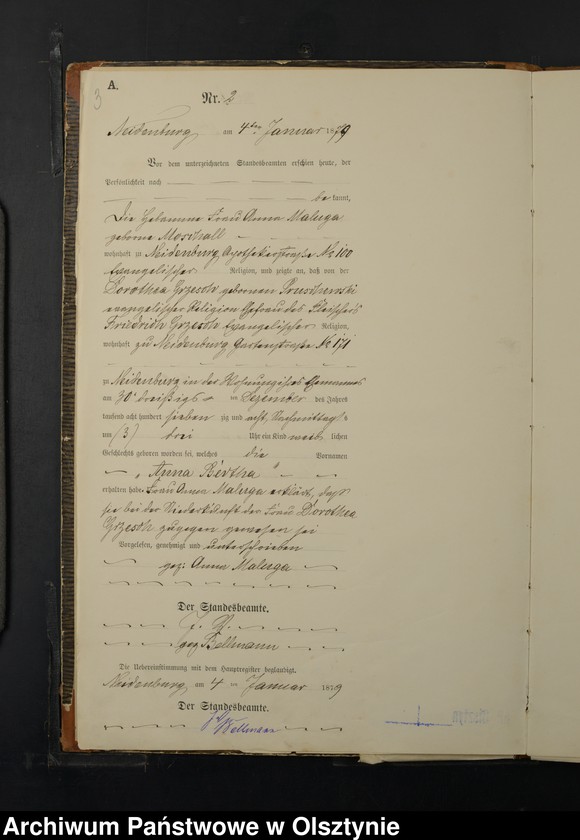 A.
3
Nr. 2
Neidenburg am 4ten Januar 1879
Vor dem unterzeichneten Standesbeamten erschien heute, der
Persönlichkeit nach
bekannt,
die Hebamme Frau Anna Maluga
geborne Moschall
wohnhaft zu Neidenburg Apothekerstraße No 100
Evangelischer Religion, und zeigte an, daß von der
Dorothea Grzesch gebornen Pruschewski
evangelischer Religion Ehefrau des Fleischers
Friedrich Grzesch Evangelischer Religion,
wohnhaft zu Neidenburg Gartenstraße No 171
zu Neidenburg in der Wohnung ihres Ehemannes
am 30 dreißigs ten Dezember des Jahres
tausend acht hundert sieben zig und acht, Nachmittags
um (3) drei Uhr ein Kind weib lichen
Geschlechts geboren worden sei, welches die Vornamen
„Anna Bertha"
erhalten habe. Frau Anna Maluga erklärt, daß
sie bei der Niederkunft der Frau Dorothea
Grzesch zugegen gewesen sei
Vorgelesen, genehmigt und unterschrieben
gez: Anna Maluga
Der Standesbeamte.
J. V.
gez Bellmann
Die Uebereinstimmung mit dem Hauptregister beglaubigt.
Neidenburg am 4 ten Januar 1879
Der Standesbeamte.
J. V. Bellmann
Archiwum Państwowe w Olsztynie